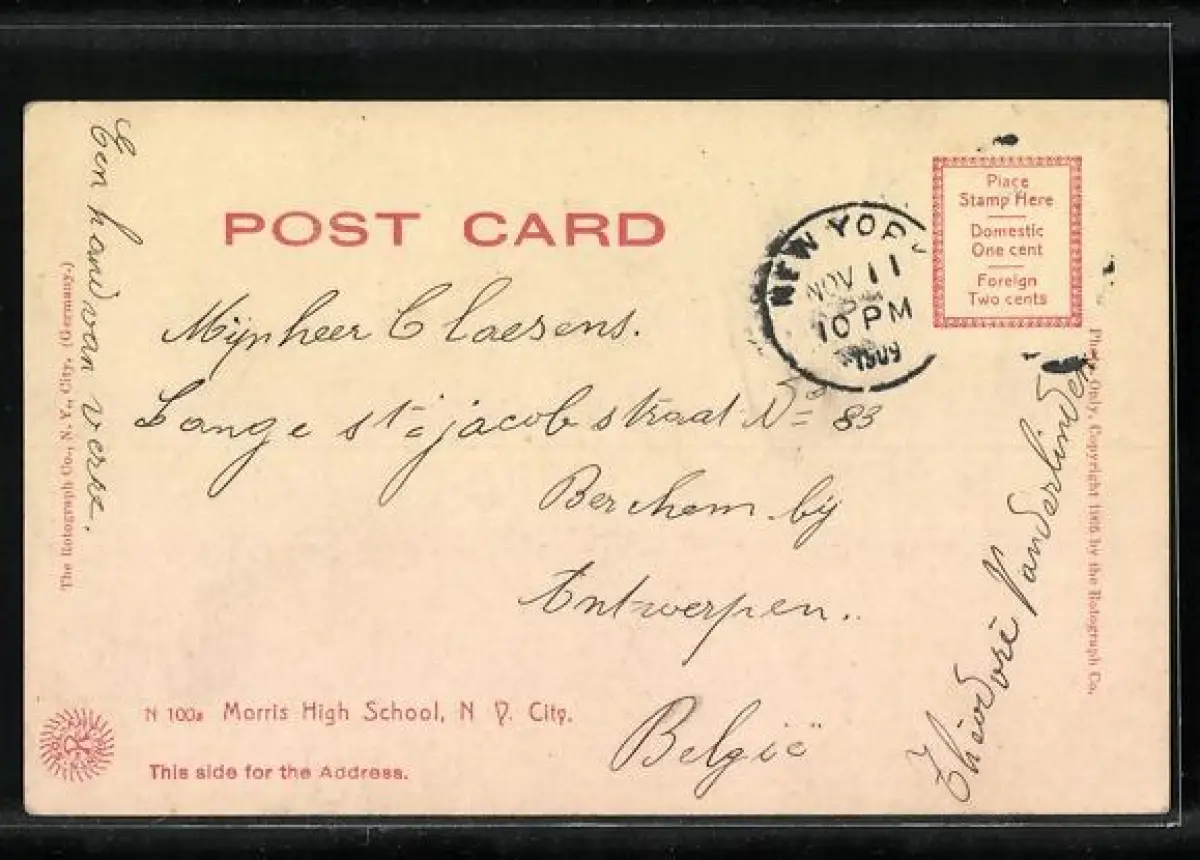 POST CARD
Place
Stamp Here
Domestic
One cent
Foreign
Two cents
NEW YORK
NOV 11
10 PM
1909
Een hand van verre.
The Rotograph Co., N. Y., City. (Germany.)
Mijnheer Claesens.
Lange st= jacob straat No= 83
Berchem bij
Antwerpen..
België
Théodore Vanderlinden
Photo Only, Copyright 1905 by the Rotograph Co.
N 100a Morris High School, N Y. City.
This side for the Address.